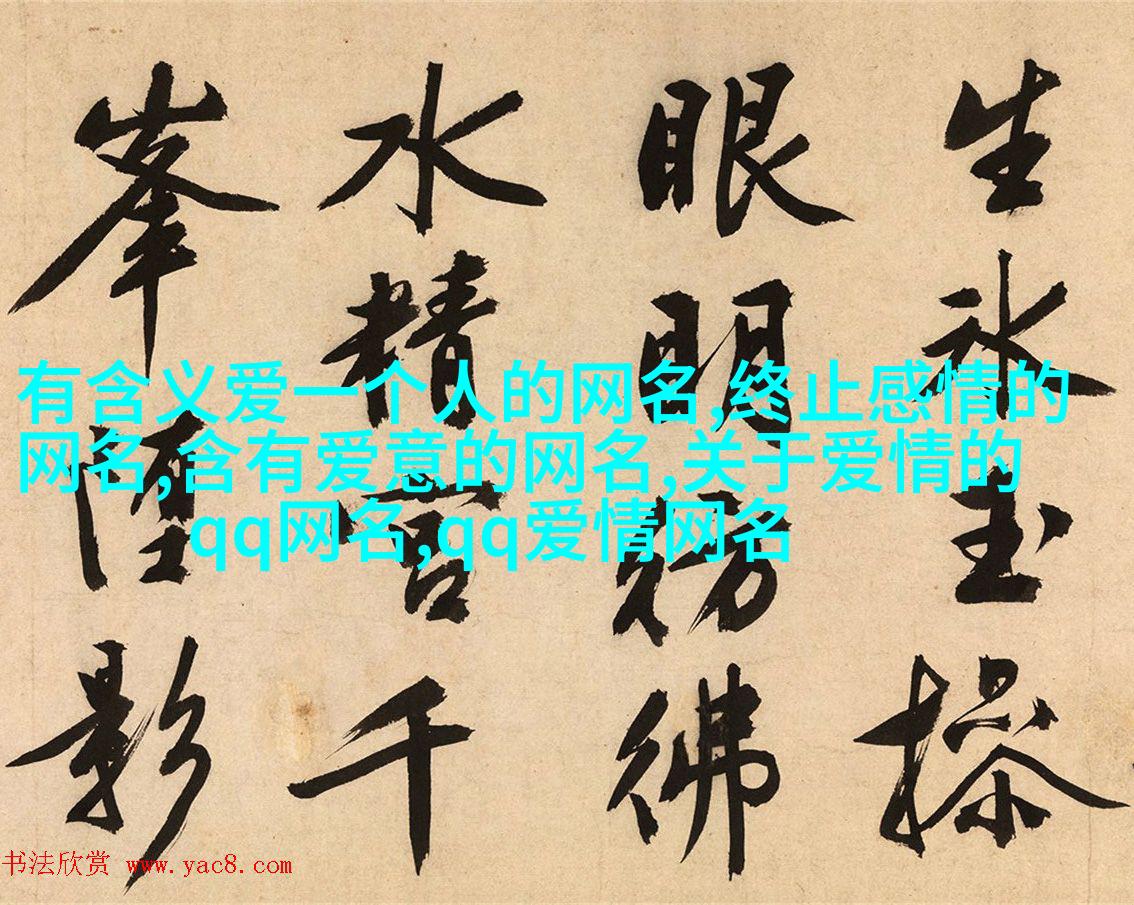 生氷玉操
眼明彷彿
水精宫千
峯影
有含义爱一个人的网名,终止感情的
网名,含有爱意的网名,关于爱情的
qq网名,qq爱情网名
书法欣赏 www.yac8.com